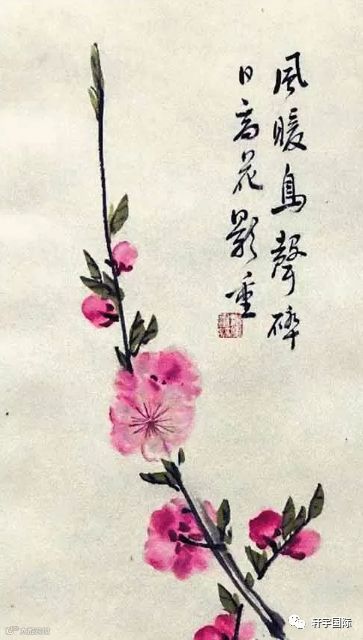 風暖鳥聲碎
日高花影重
轩宇国际